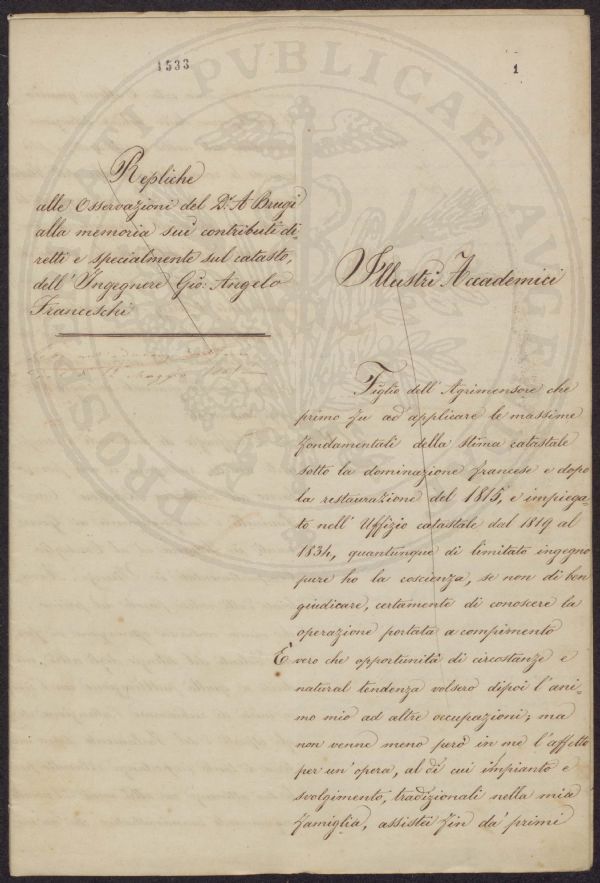 1533
1
PROSPERITATI PUBLICAE AUGE
Repliche
alle Osservazioni del Dr. A Brugi
alla memoria sui contributi di-
retti e specialmente sul catasto,
dell'Ingegnere Gio: Angelo
Franceschi
Illustri Accademici
Figlio dell'Agrimensore che
primo fu ad applicare le massime
fondamentali della stima catastale
sotto la dominazione francese e dopo
la restaurazione del 1815, e impiega-
to nell'Uffizio catastale dal 1819 al
1834, quantunque di limitato ingegno
pure ho la coscienza, se non di ben
giudicare, certamente di conoscere la
operazione portata a compimento
È vero che opportunità di circostanze e
natural tendenza volsero dipoi l'ani-
mo mio ad altre occupazioni; ma
non venne meno però in me l'affetto
per un'opera, al di cui impianto e
svolgimento, tradizionali nella mia
famiglia, assistei fin da' primi